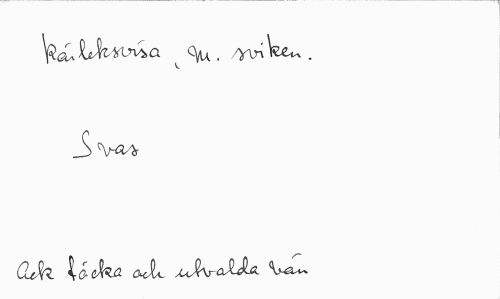 Kärleksvisa, m. sviken.
Svas
Ack täcka och utvalda vän